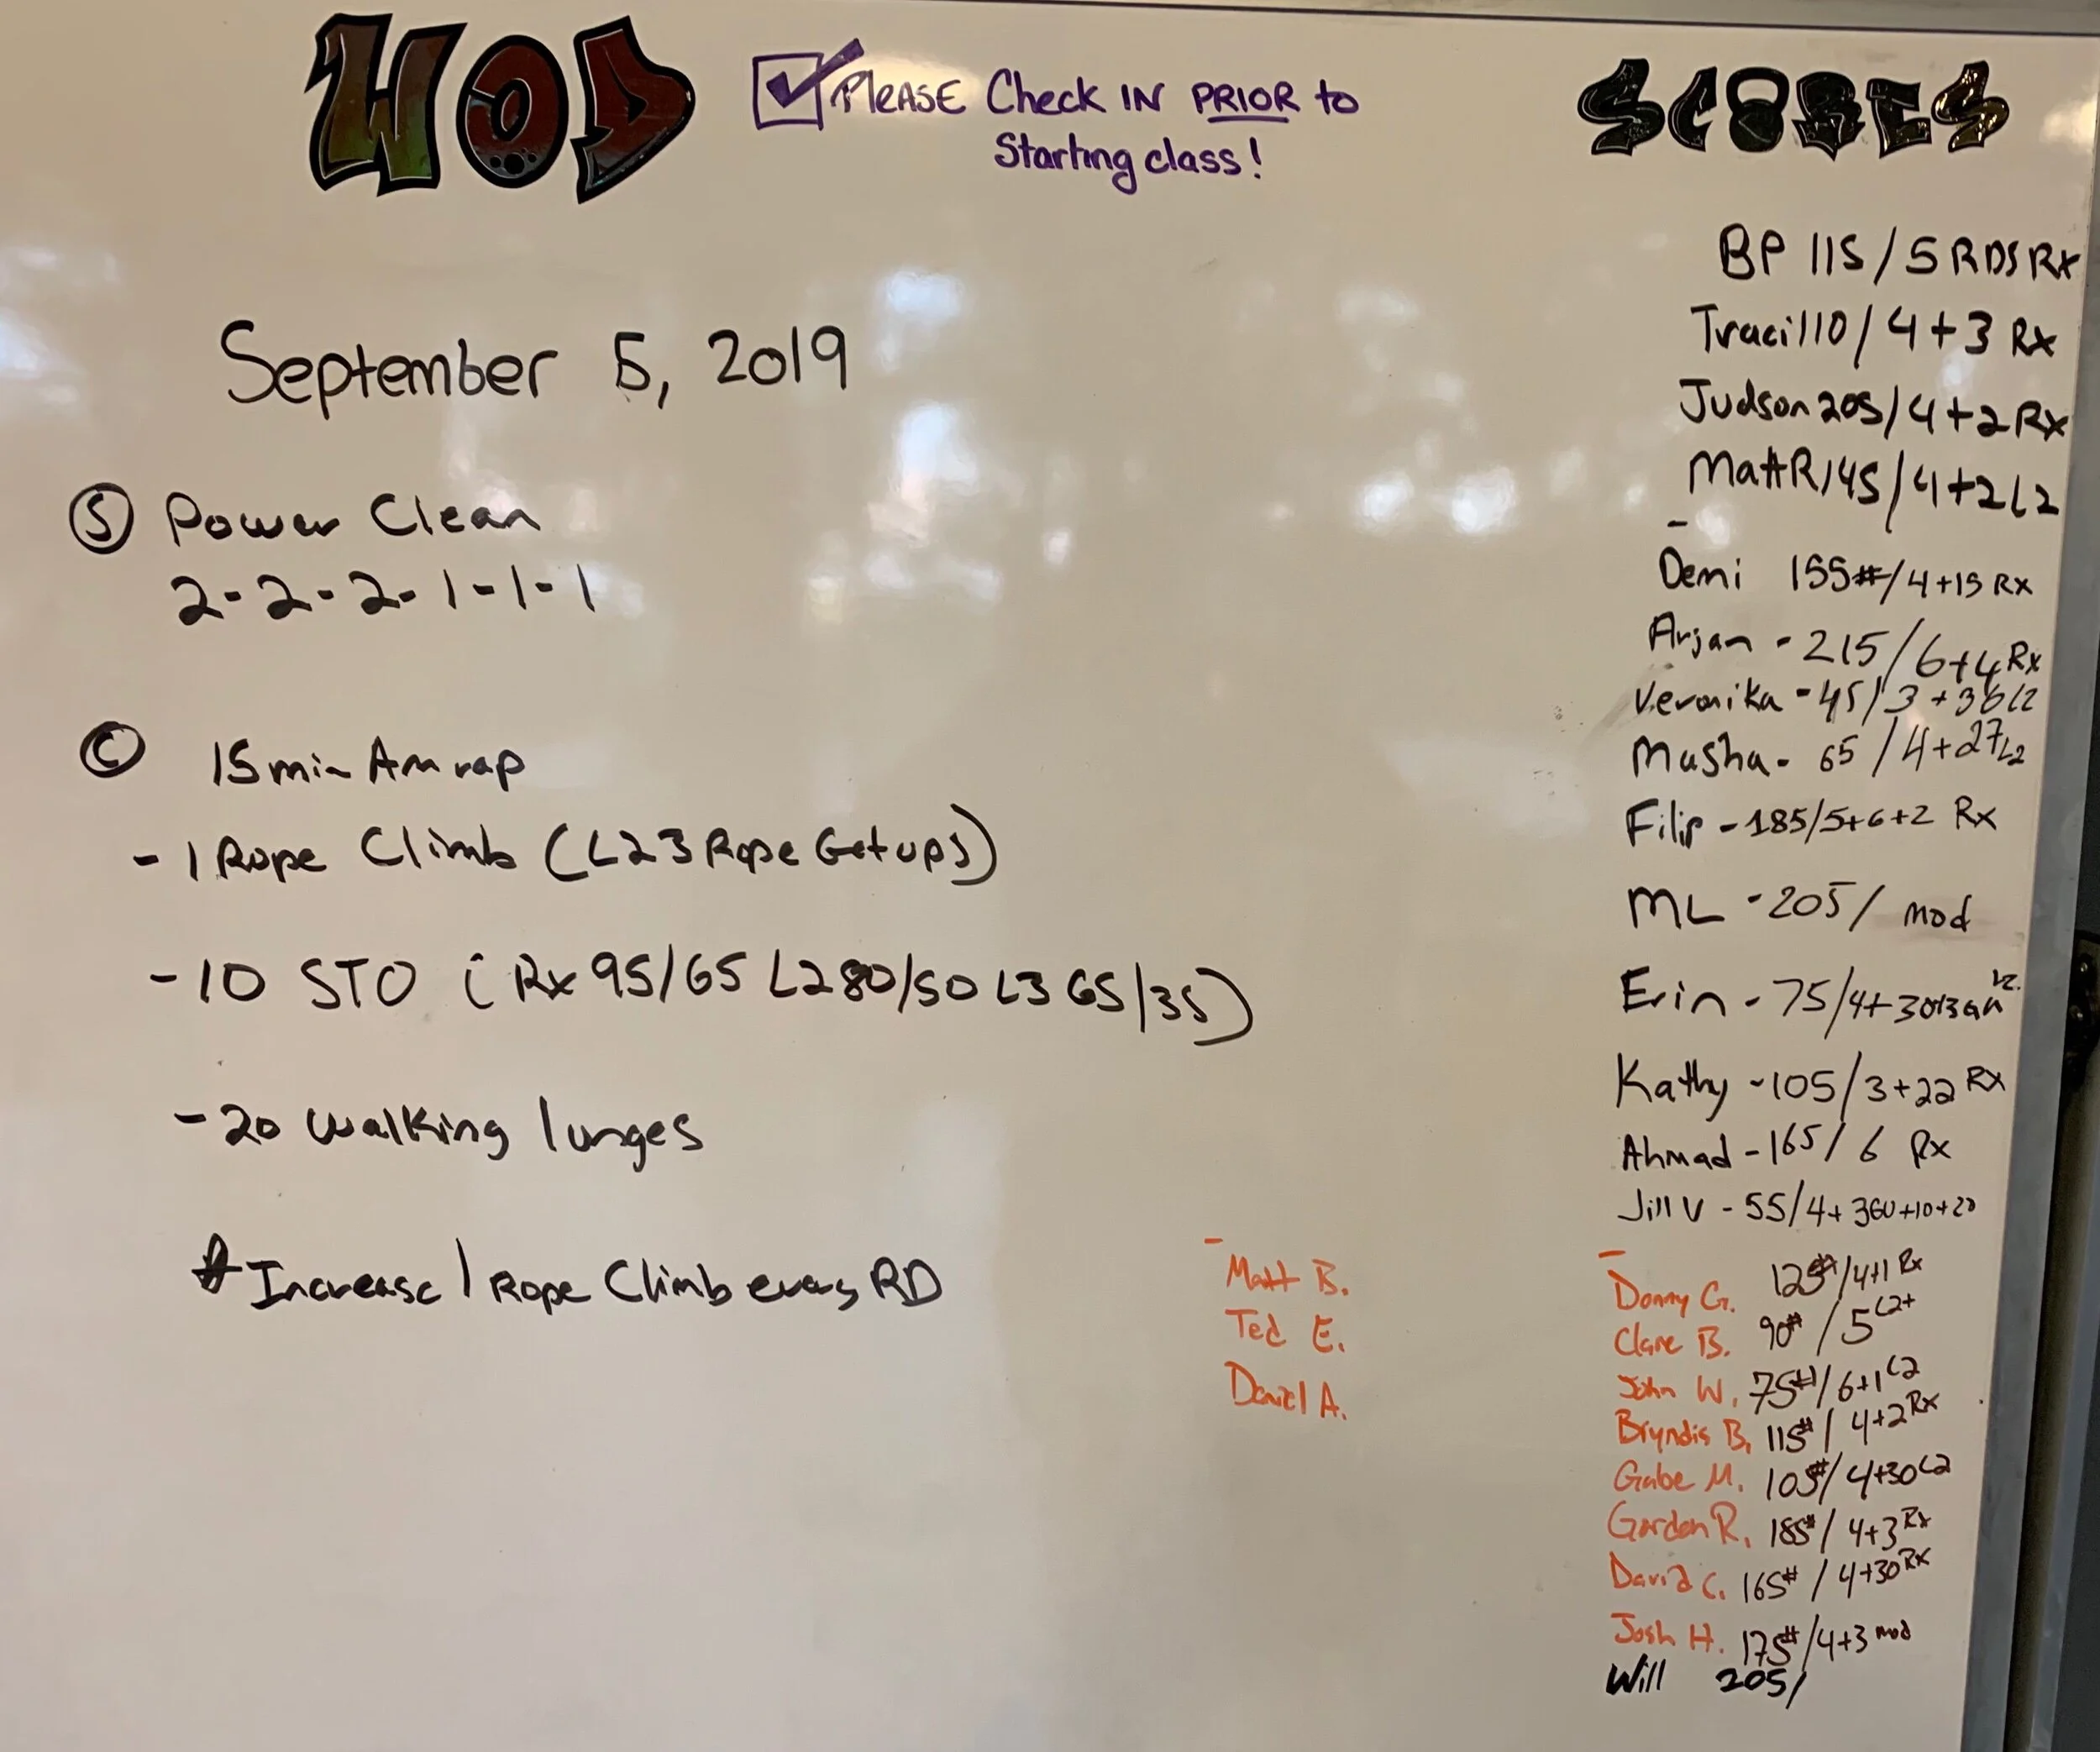 WOD
PLEASE Check IN PRIOR to
Starting class!
SCORES
September 5, 2019
Ⓢ Power Clean
2-2-2-1-1-1
Ⓒ 15min Amrap
- 1 Rope Climb (L2 3 Rope Get ups)
- 10 STO (Rx 95/65 L2 80/50 L3 65/35)
- 20 Walking lunges
* Increase 1 Rope Climb every RD
BP 115/5 RDS Rx
Traci 110/4+3 Rx
Judson 205/4+2 Rx
Matt R 145/4+2 L2
Demi 155#/4+15 Rx
Arjan - 215/6+4 Rx
Veronika - 45/3+36 L2
Masha - 65/4+27 L2
Filip - 185/5+6+2 Rx
ML - 205/ mod
Erin - 75/4+30+3 L2
Kathy - 105/3+22 Rx
Ahmad - 165/6 Rx
Jill V - 55/4+3GU+10+20
Matt B.
Ted E.
Daniel A.
Donny G. 125#/4+1 Rx
Clare B. 90#/5 L2+
John W. 75#/6+1 L2
Bryndis B. 115#/4+2 Rx
Gabe M. 105#/4+30 L2
Gordon R. 185#/4+3 Rx
David C. 165#/4+30 Rx
Josh H. 175#/4+3 mod
Will 205/